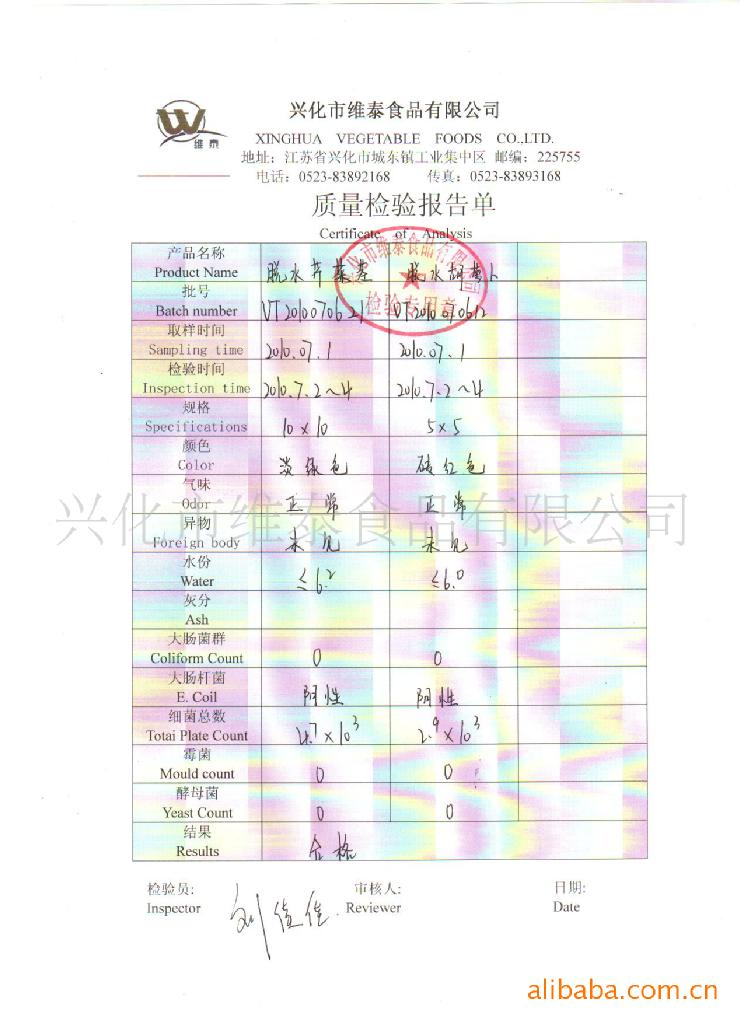 W
维泰
兴化市维泰食品有限公司
XINGHUA VEGETABLE FOODS CO.,LTD.
地址：江苏省兴化市城东镇工业集中区 邮编：225755
电话：0523-83892168 传真：0523-83893168
质量检验报告单
Certificate of Analysis
兴化市维泰食品有限公司
检验专用章
产品名称
Product Name 脱水芹菜茎 脱水胡萝卜
批号
Batch number VT2010070621 VT2010070612
取样时间
Sampling time 2010.07.1 2010.07.1
检验时间
Inspection time 2010.7.2~4 2010.7.2~4
规格
Specifications 10×10 5×5
颜色
Color 淡绿色 砖红色
气味
Odor 正常 正常
异物
Foreign body 未见 未见
水份
Water ≤6.2 ≤6.0
灰分
Ash
大肠菌群
Coliform Count 0 0
大肠杆菌
E. Coil 阴性 阴性
细菌总数
Totai Plate Count 2.7×10³ 2.9×10³
霉菌
Mould count 0 0
酵母菌
Yeast Count 0 0
结果
Results 合格
兴化市维泰食品有限公司
检验员: 审核人: 日期:
Inspector Reviewer Date
alibaba.com.cn